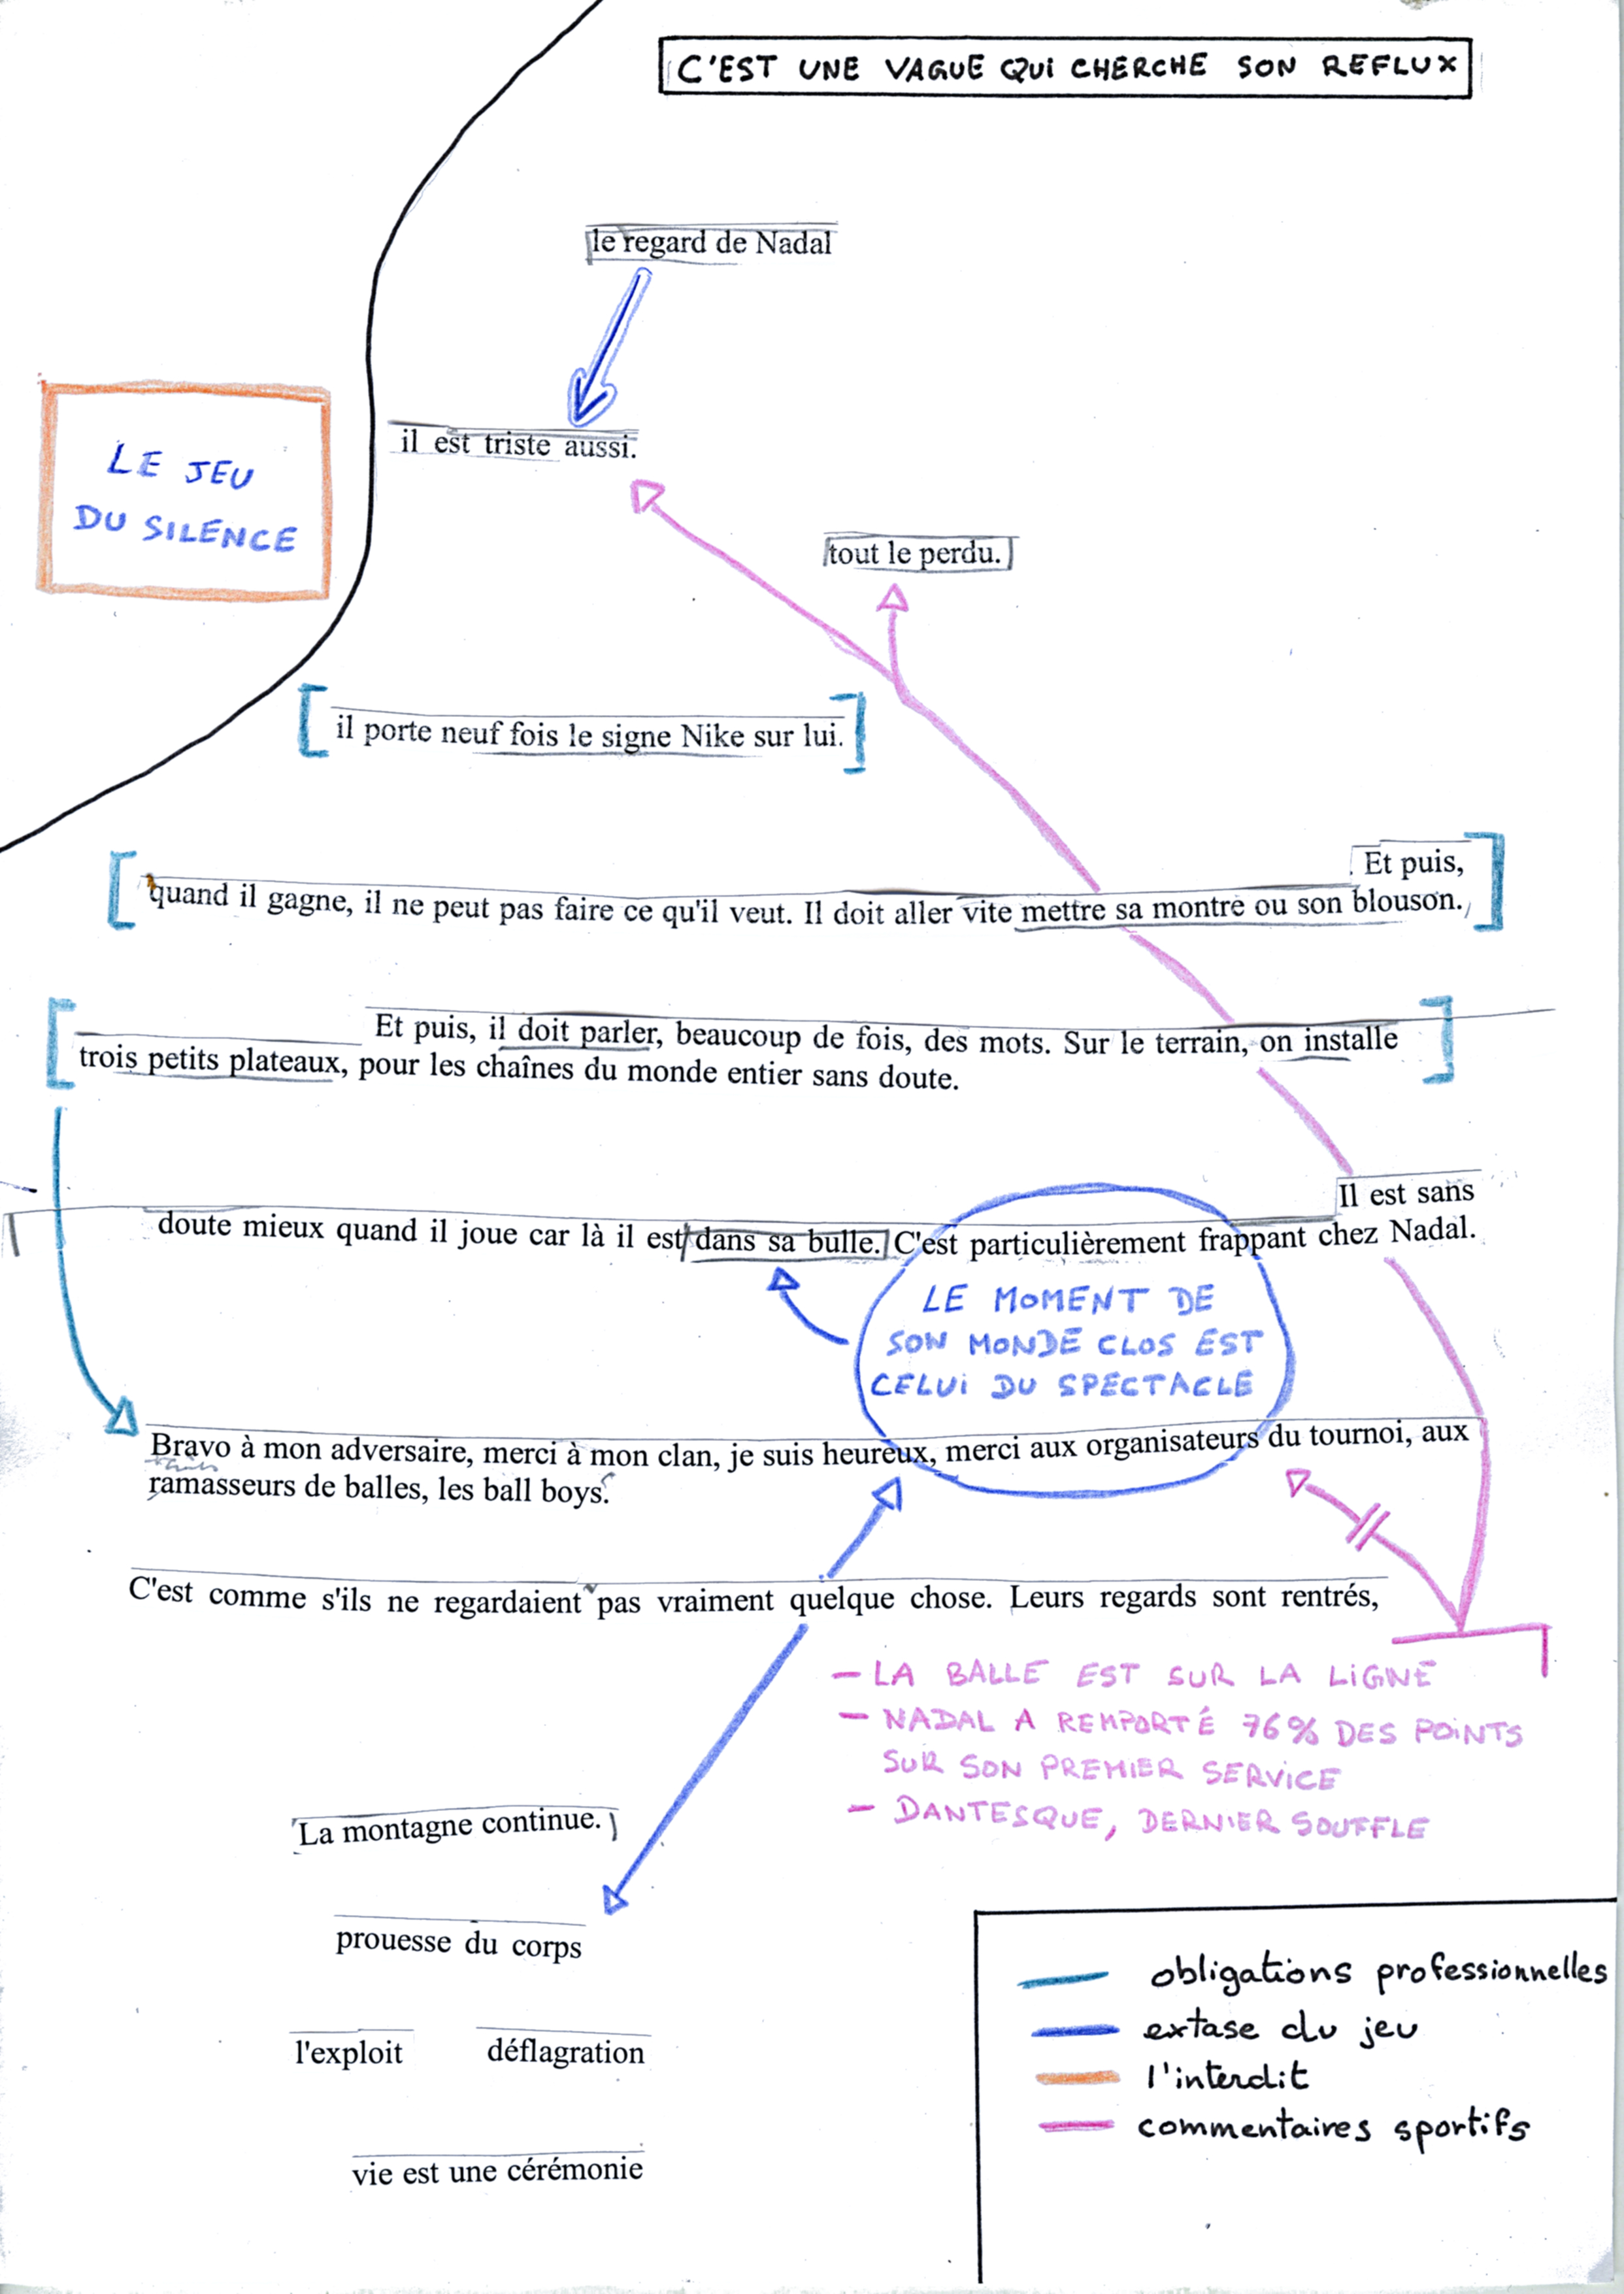 C'EST UNE VAGUE QUI CHERCHE SON REFLUX
le regard de Nadal
il est triste aussi.
LE JEU
DU SILENCE
tout le perdu.
il porte neuf fois le signe Nike sur lui.
Et puis,
quand il gagne, il ne peut pas faire ce qu'il veut. Il doit aller vite mettre sa montre ou son blouson.
Et puis, il doit parler, beaucoup de fois, des mots. Sur le terrain, on installe
trois petits plateaux, pour les chaînes du monde entier sans doute.
Il est sans
doute mieux quand il joue car là il est dans sa bulle. C'est particulièrement frappant chez Nadal.
LE MOMENT DE
SON MONDE CLOS EST
CELUI DU SPECTACLE
Bravo à mon adversaire, merci à mon clan, je suis heureux, merci aux organisateurs du tournoi, aux
ramasseurs de balles, les ball boys.
C'est comme s'ils ne regardaient pas vraiment quelque chose. Leurs regards sont rentrés,
- LA BALLE EST SUR LA LIGNE
- NADAL A REMPORTÉ 76% DES POINTS
SUR SON PREMIER SERVICE
- DANTESQUE, DERNIER SOUFFLE
La montagne continue.
prouesse du corps
l'exploit déflagration
vie est une cérémonie
obligations professionnelles
extase du jeu
l'interdit
commentaires sportifs